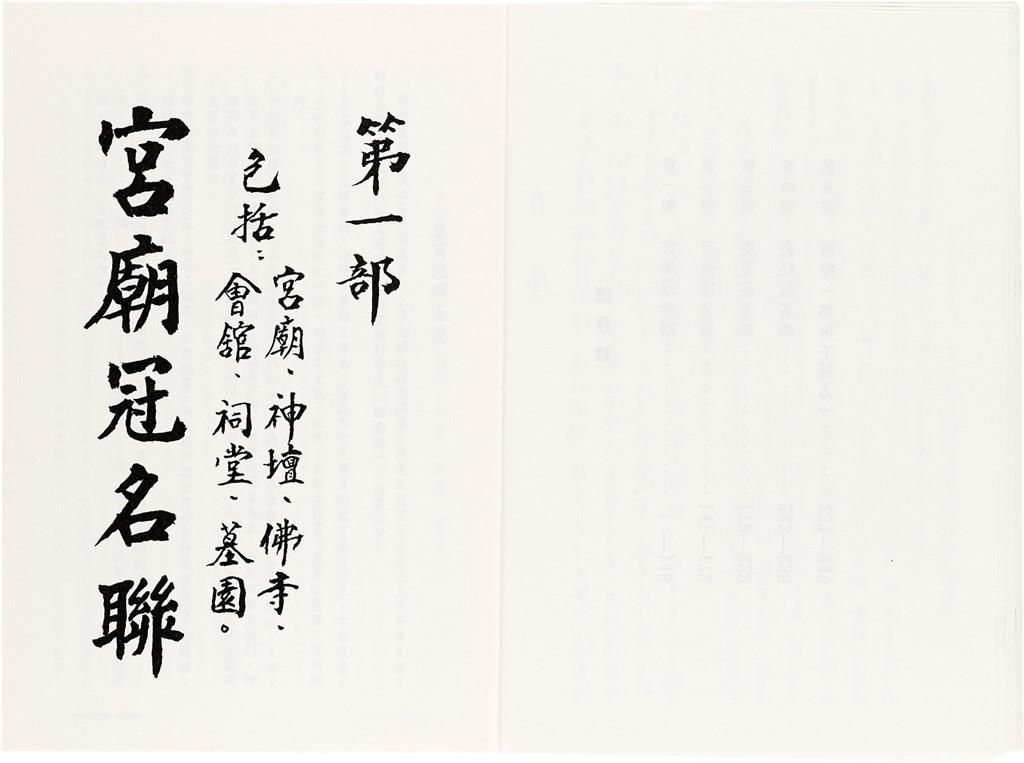 第一部
包括：
宮廟、神壇、佛寺、
會舘、祠堂、墓園。
宮廟冠名聯